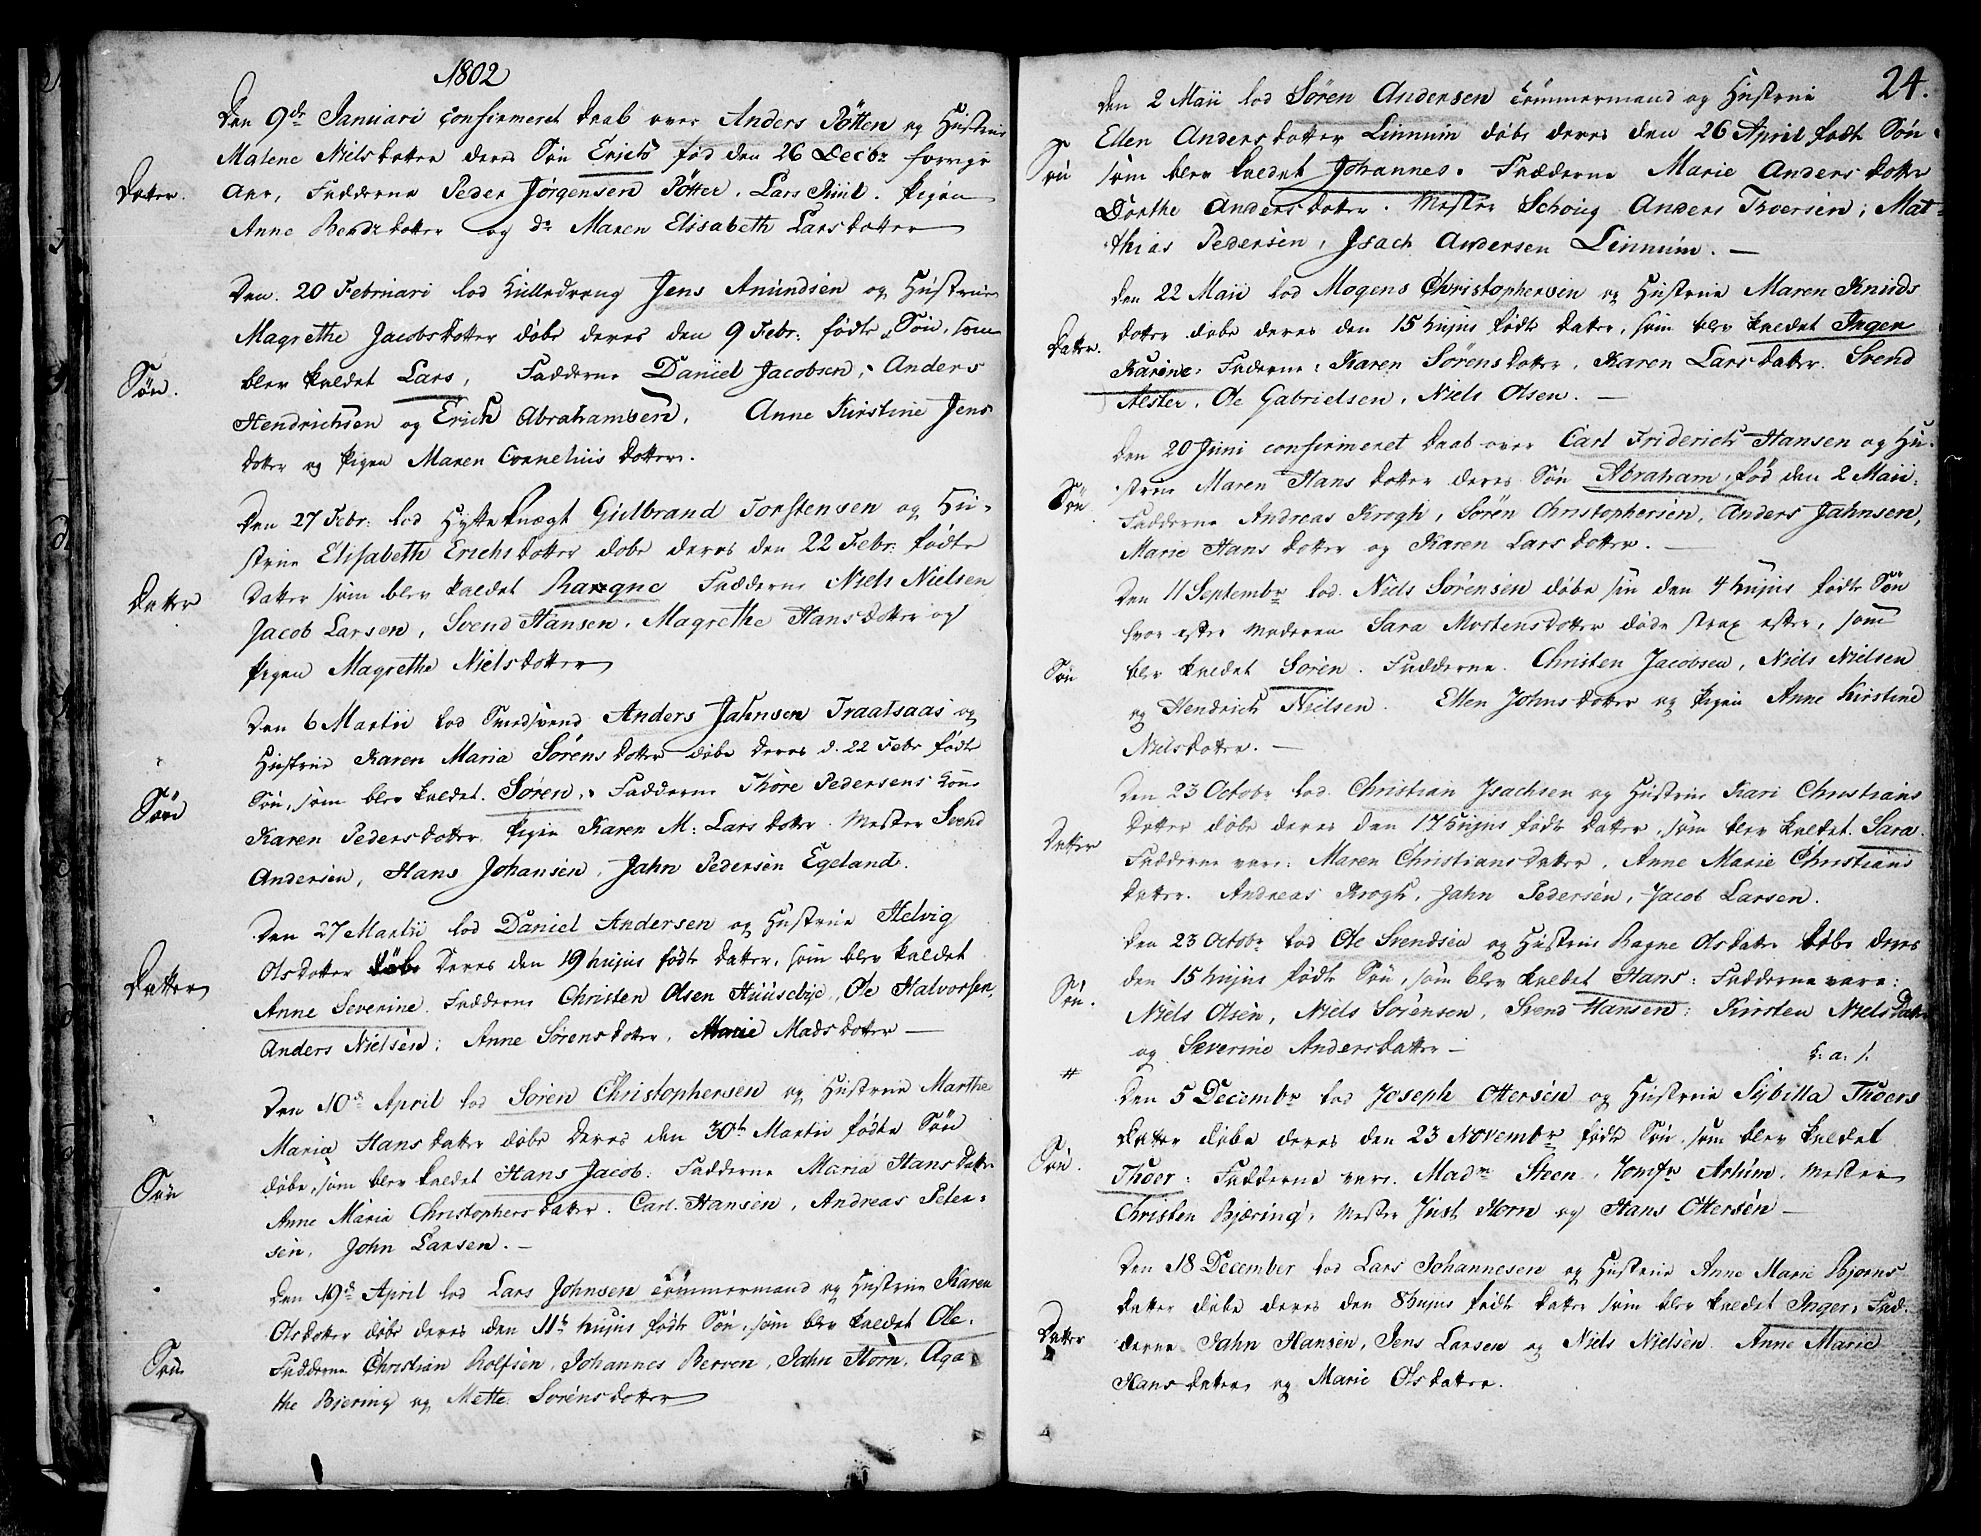 1802
Den 9de Januari confirmeret Daab over Anders Pötten og Hustrue
Malene Nielsdatter deres Sön Erich fød den 26 Decbr forrige
Datter.
Aar, Fadderne Peder Jörgensen Pötter, Lars Pigen
Anne Bendtzdatter og do Maren Elisabeth Larsdatter
Den 20 Februari lod Hilledreng Jens Amundsen og Hustrue
Magrethe Jacobsdatter döbe deres den 9 Febr: fødte Sön, som
Sön.
blev kaldet Lars, Fadderne Daniel Jacobsen, Anders
Hendrichsen og Erich Abrahamsen, Anne Kirstine Jens
datter og Pigen Maren Cornelius datter.
Den 27 Febr: lod Hytteknægt Gulbrand Torstensen og Hu-
strue Elisabeth Erichsdatter döbe deres den 22 Febr: fødte
Datter
Datter som blev kaldet Ragne Fadderne Niels Nielsen
Jacob Larsen, Svend Hansen, Magrethe Hansdatter og
Pigen Magrethe Nielsdatter
Den 6 Martii lod Svend Anders Jahnsen Traatsaas og
Hustrue Karen Maria Sörensdatter döbe deres d. 22 Febr fødte
Sön
Sön, som blev kaldet Sören, Fadderne Thore Pedersens Kone
Karen Pedersdatter, Pigen Karen M: Larsdatter. Mester Svend
Andersen, Hans Johansen, Jahn Pedersen Egeland.
Den 27 Martii lod Daniel Andersen og Hustrue Helvig
Datter
Olsdatter döbe deres den 19 hujus fødte Datter, som blev kaldet
Anne Severine. Fadderne Christen Olsen Huuseby, Ole Halvorsen,
Anders Nielsen, Anne Sörensdatter, Marie Madsdatter —
Den 10de April lod Sören Christophersen og Hustrue Marthe
Maria Hansdatter döbe deres den 30te Martii fødte Sön
Sön
döbe, som blev kaldet Hans Jacob. Fadderne Maria Hansdatter
Anne Maria Christophersdatter. Carl Hansen, Andreas Peter-
sen, John Larsen. —
Den 19de April lod Lars Johnsen Tömmermand og Hustrue Karen
Olsdatter döbe deres den 11te hujus fødte Sön, som blev kaldet Ole.
Sön
Fadderne Christian Rolfsen, Johannes Berven, Jahn Horn, Aga
the Biering og Mette Sörensdatter
24.
Den 2 Maii lod Sören Andersen Tömmermand og Hustrue
Ellen Andersdatter Linnum döbe deres den 26 April fødte Sön
Sön
som blev kaldet Johannes. Fadderne Marie Andersdatter
Dorthe Andersdatter. Mester Schoug Anders Thoersen, Mat-
thias Pedersen, Isach Andersen Linnum. —
Den 22 Maii lod Mogens Christophersen og Hustrue Maren Knuds
Datter.
datter döbe deres den 15 hujus fødte Datter, som blev kaldet Inger
Karine. Fadderne: Karen Sörensdatter, Karen Larsdatter. Svend
Alster, Ole Gabrielsen, Niels Olsen. —
Den 20 Juni confirmeret Daab over Carl Friderich Hansen og Hu-
Sön
strue Maren Hansdatter deres Sön Abraham, fød den 2 Maii.
Fadderne Andreas Krogh, Sören Christophersen, Anders Jahnsen,
Marie Hansdatter og Karen Larsdatter. —
Den 11 Septembr lod Niels Sörensen döbe sin den 4 hujus fødte Sön
hvor efter Moderen Sara Mortensdatter döde strax efter, som
Sön
blev kaldet Sören. Fadderne Christen Jacobsen, Niels Nielsen
og Hendrich Nielsen. Ellen Johnsdatter og Pigen Anne Kirstine
Nielsdatter. —
Den 23 Octobr lod Christian Isachsen og Hustrue Kari Christians
Datter
Datter döbe deres den 17 hujus fødte Datter, som blev kaldet Sara.
Fadderne vare: Maren Christiansdatter, Anne Marie Christians
datter. Andreas Krogh, Jahn Pedersen, Jacob Larsen.
Den 23 Octobr lod Ole Svendsen og Hustrue Ragne Olsdatter döbe deres
Sön.
den 15 hujus fødte Sön, som blev kaldet Hans. Fadderne vare:
Niels Olsen, Niels Sörensen, Svend Hansen: Kirsten Nielsdatter
og Severine Andersdatter —
#
Den 5 Decembr lod Joseph Ottersen og Hustrue Sybilla Thoers
Sön.
datter döbe deres den 23 Novembr fødte Sön, som blev kaldet
Thoer. Fadderne vare. Madm Steen, Jomfr Mester
Christen Bjæring, Mester Just Horn og Hans Ottersen —
Den 18 December lod Lars Johannesen og Hustrue Anne Marie Bjorns
datter döbe deres den 8 hujus fødte Datter som blev kaldet Inger. Fad-
Datter
derne Jahn Hansen, Jens Larsen og Niels Nielsen. Anne Marie
Hansdatter og Marie Olsdatter.